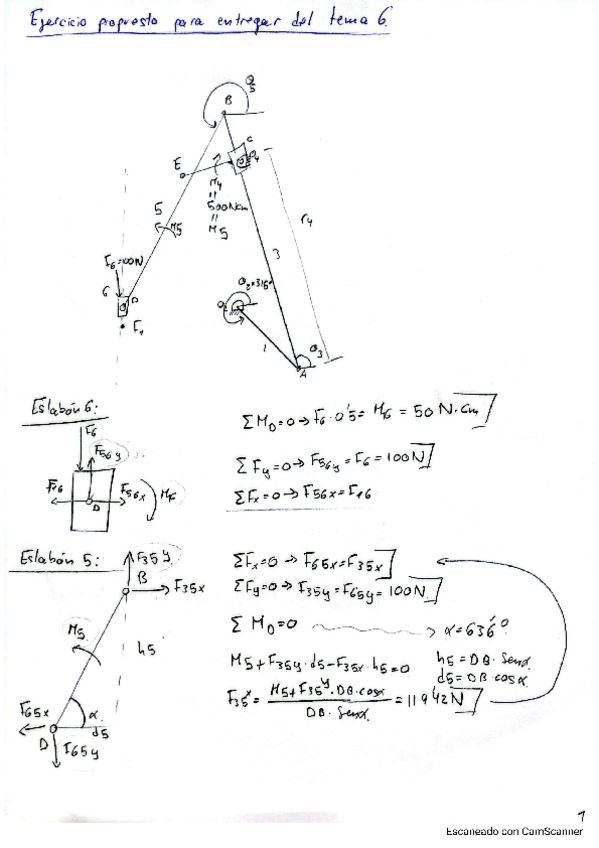 Ejercicio propuesto para entregar del tema 6.
θ5
B
C
θ4
E
M4
"
500Ncm
"
M5
r4
5
M5
3
F6=100N
6
D
θ2=316°
O2
1
θ3
A
Eslabón 6:
F6
F56y
F16
F56x
M6
D
ΣMD=0→F6·0'5=M6=50N·cm
ΣFy=0→F56y=F6=100N
ΣFx=0→F56x=F16
Eslabón 5:
F35y
B
F35x
M5
h5
F65x
α
d5
D
F65y
ΣFx=0→F65x=F35x
ΣFy=0→F35y=F65y=100N
ΣMD=0 → α=63'6°
M5+F35y·d5-F35x·h5=0
h5=DB·senα
d5=DB·cosα
F35x=M5+F35y·DB·cosα/DB·senα=119'42N
1
Escaneado con CamScanner